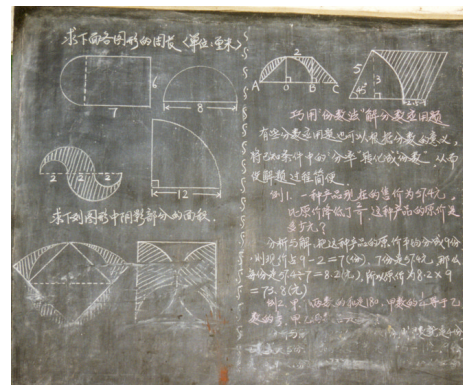 求下面各图形的周长(单位:厘米)
6
7
8
2 2 2
12
求下列图形中阴影部分的面积.
2
A O B C
5
3
45°
巧用"份数法"解分数应用题
有些分数应用题也可以根据分数的意义,
将已知条件中的"分率"转化成"份数",从而
使解题过程简便.
例1. 一种产品现在的售价为57.4元,
比原价降低了 这种产品的原价是
多少元?
分析与解:把这种产品的原价平均分成9份
则现价占9-2=7(份), 7份是57.4元,那么
每份是57.4÷7=8.2(元),所以原价为8.2×9
=73.8(元)
例2. 甲 两数的和是180, 甲数的 等于乙
数的 甲乙